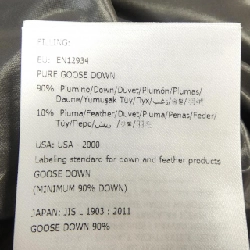 FILLING:
EU: EN12934
PURE GOOSE DOWN
90% Piumino/Down/Duvet/Plumón/Plumes/
Daune/Yumuşak Tüy/Пух/
10% Piuma/Feather/Duvet/Pluma/Penas/Feder/
Tüy/Перо/ريش/
USA: USA - 2000
Labeling standard for down and feather products
GOOSE DOWN
(MINIMUM 90% DOWN)
JAPAN: JIS L 1903 : 2011
GOOSE DOWN 90%